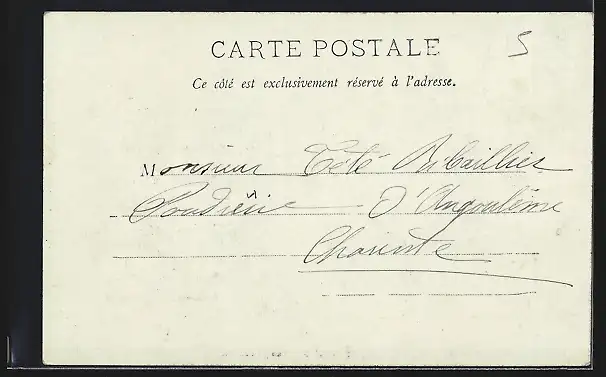 CARTE POSTALE
5
Ce côté est exclusivement réservé à l'adresse.
Monsieur Tété
Poudrerie D'Angoulême
Charente